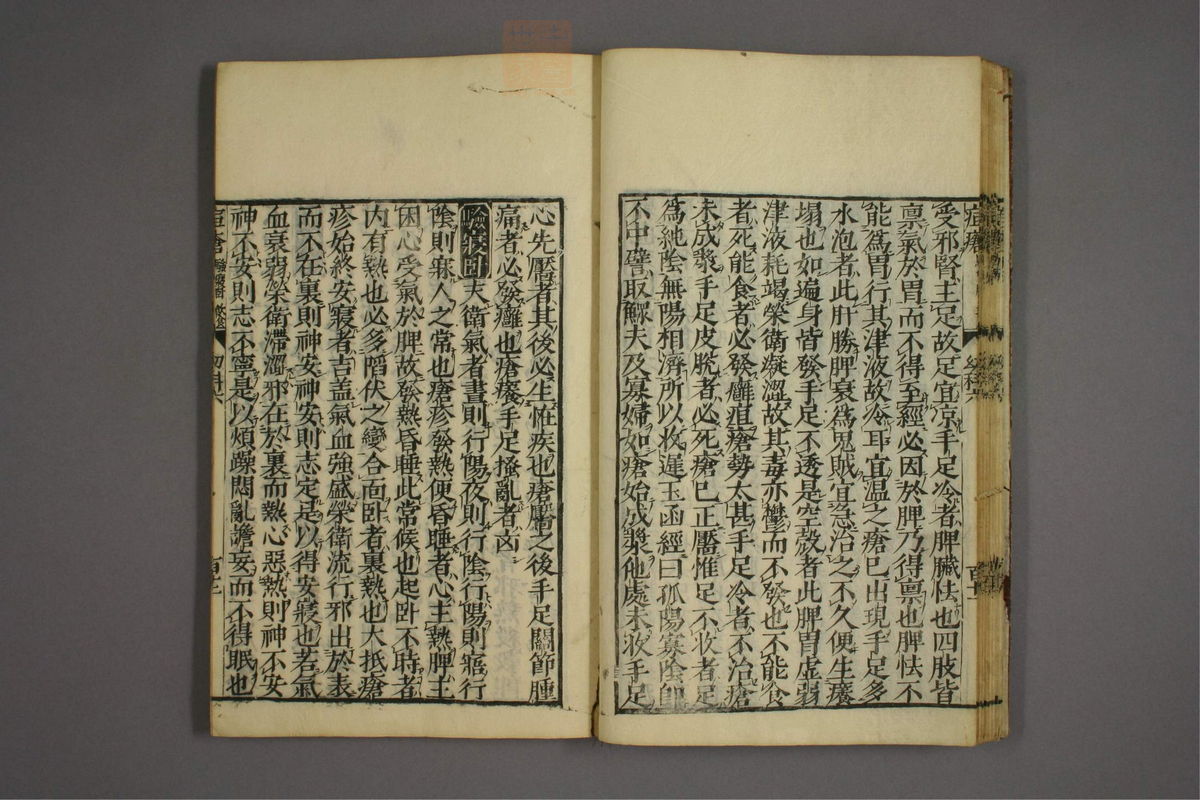 受邪腎主足故足宜凉手足冷者脾臟怯也四肢皆
禀氣於胃而不得至經必因於脾乃得禀也脾怯不
能爲胃行其津液故冷耳宜温之瘡已出現手足多
水泡者此肝勝脾衰爲鬼賊宜急治之不久便生癢
塌也如遍身皆發手足不透是空殼者此脾胃虚弱
津液耗竭榮衛凝澀故其毒亦鬱而不發也不能食
者死能食者必發癰疽瘡勢太甚手足冷者不治瘡
未成漿手足皮脫者必死瘡已正靨惟足不收者足
爲純陰無陽相濟所以收遲玉函經曰孤陽寡陰卽
不中譬取鰥夫及寡婦如瘡始成漿他處未收手足
心先靨者其後必生恠疾也瘡靨之後手足關節腫
痛者必發癰也瘡癢手足撓亂者凶
驗寢卧 夫衛氣者晝則行陽夜則行陰行陽則寤行
陰則寐人之常也瘡疹發熱便昏睡者心主熱脾主
困心受氣於脾故發熱昏睡此常候也起卧不時者
内有熱也必多陷伏之變合面卧者裏熱也大抵瘡
疹始終安寢者吉盖氣血強盛榮衛流行邪出於表
而不在裏則神安神安則志定是以得安寢也若氣
血衰弱榮衛滯濁邪在於裏而熱心惡熱則神不安
神不安則志不寧是以煩躁悶亂譫妄而不得眠也
痘瘡 幼科六